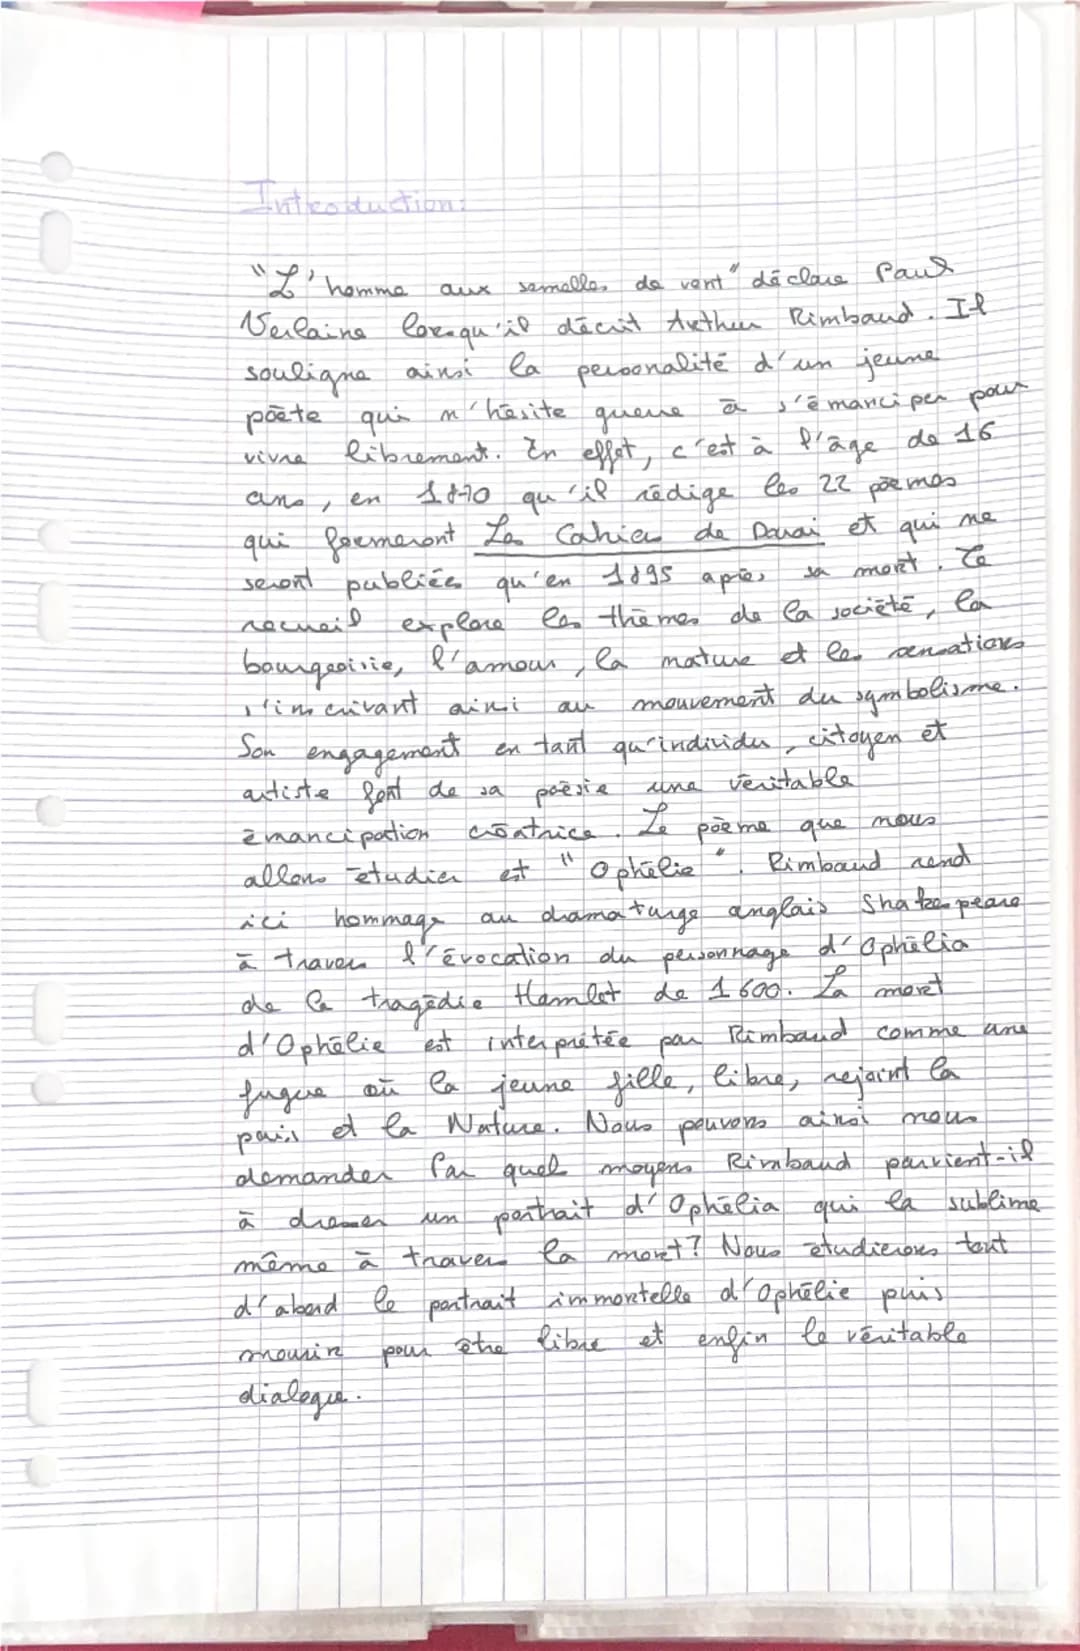 Introduction:
"L'homme aux semelles de vent" déclare Paul
Verlaine lorsqu'il décrit Arthur Rimbaud. Il
souligne ainsi la personalité d'un jeune
poète qui n'hésite guere à s'émanciper pour
vivre librement. En effet, c'est à l'âge de 16
ans, en 1870 qu'il rédige les 22 poèmes
qui formeront Les Cahier de Douai et qui ne
seront publiées qu'en 1895 après sa mort. Ce
recueil explore les thèmes de la société, la
bourgeoisie, l'amour, la nature et les sensations
s'inscrivant ainsi au mouvement du symbolisme.
Son engagement en tant qu'individu, citoyen et
artiste font de sa poésie une véritable
émancipation créatrice. Le poème que nous
allons étudier est "Ophélie". Rimbaud rend
ici hommage au dramaturge anglais Shakespeare
à travers l'évocation du personnage d'Ophélia
de la tragédie Hamlet de 1600. La mort
d'Ophélie est interprétée par Rimbaud comme une
fugue où la jeune fille, libre, rejoint la
paix et la Nature. Nous pouvons ainsi nous
demander Par quel moyens Rimbaud parvient-il
à dresser un portrait d'Ophélia qui la sublime
même à travers la mort? Nous étudierons tout
d'abord le portrait immortelle d'Ophélie puis
mourir pour être libre et enfin le véritable
dialogue.